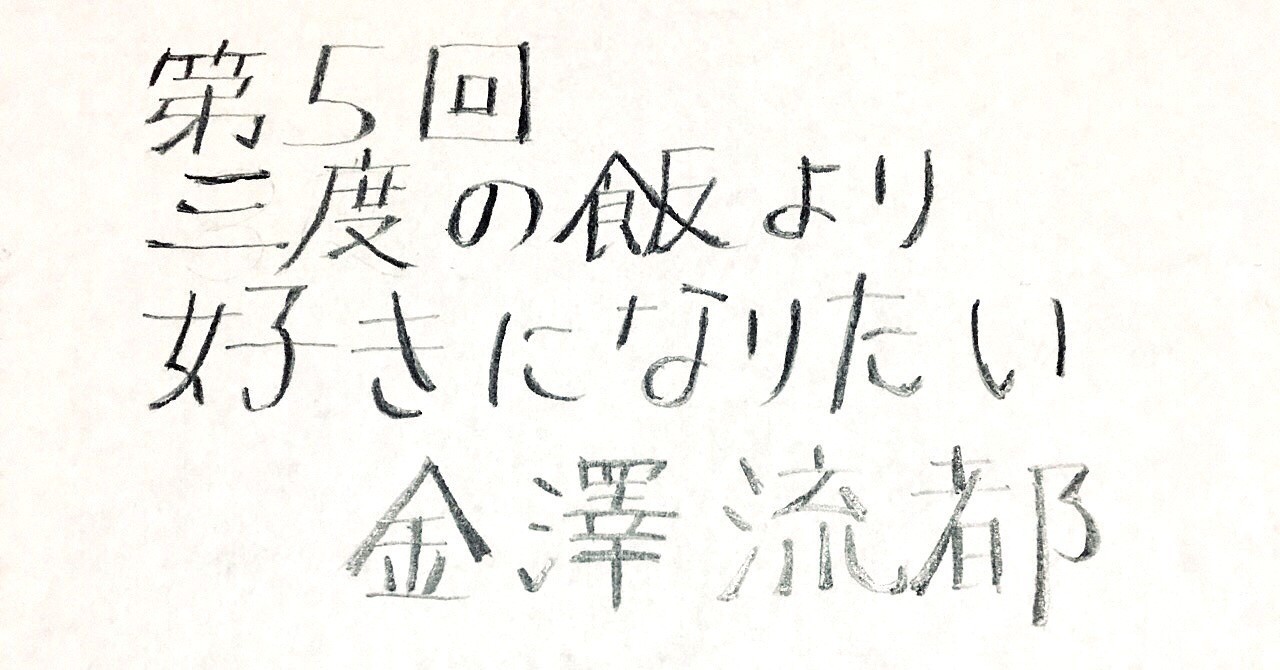 第5回
三度の飯より
好きになりたい
金澤流都